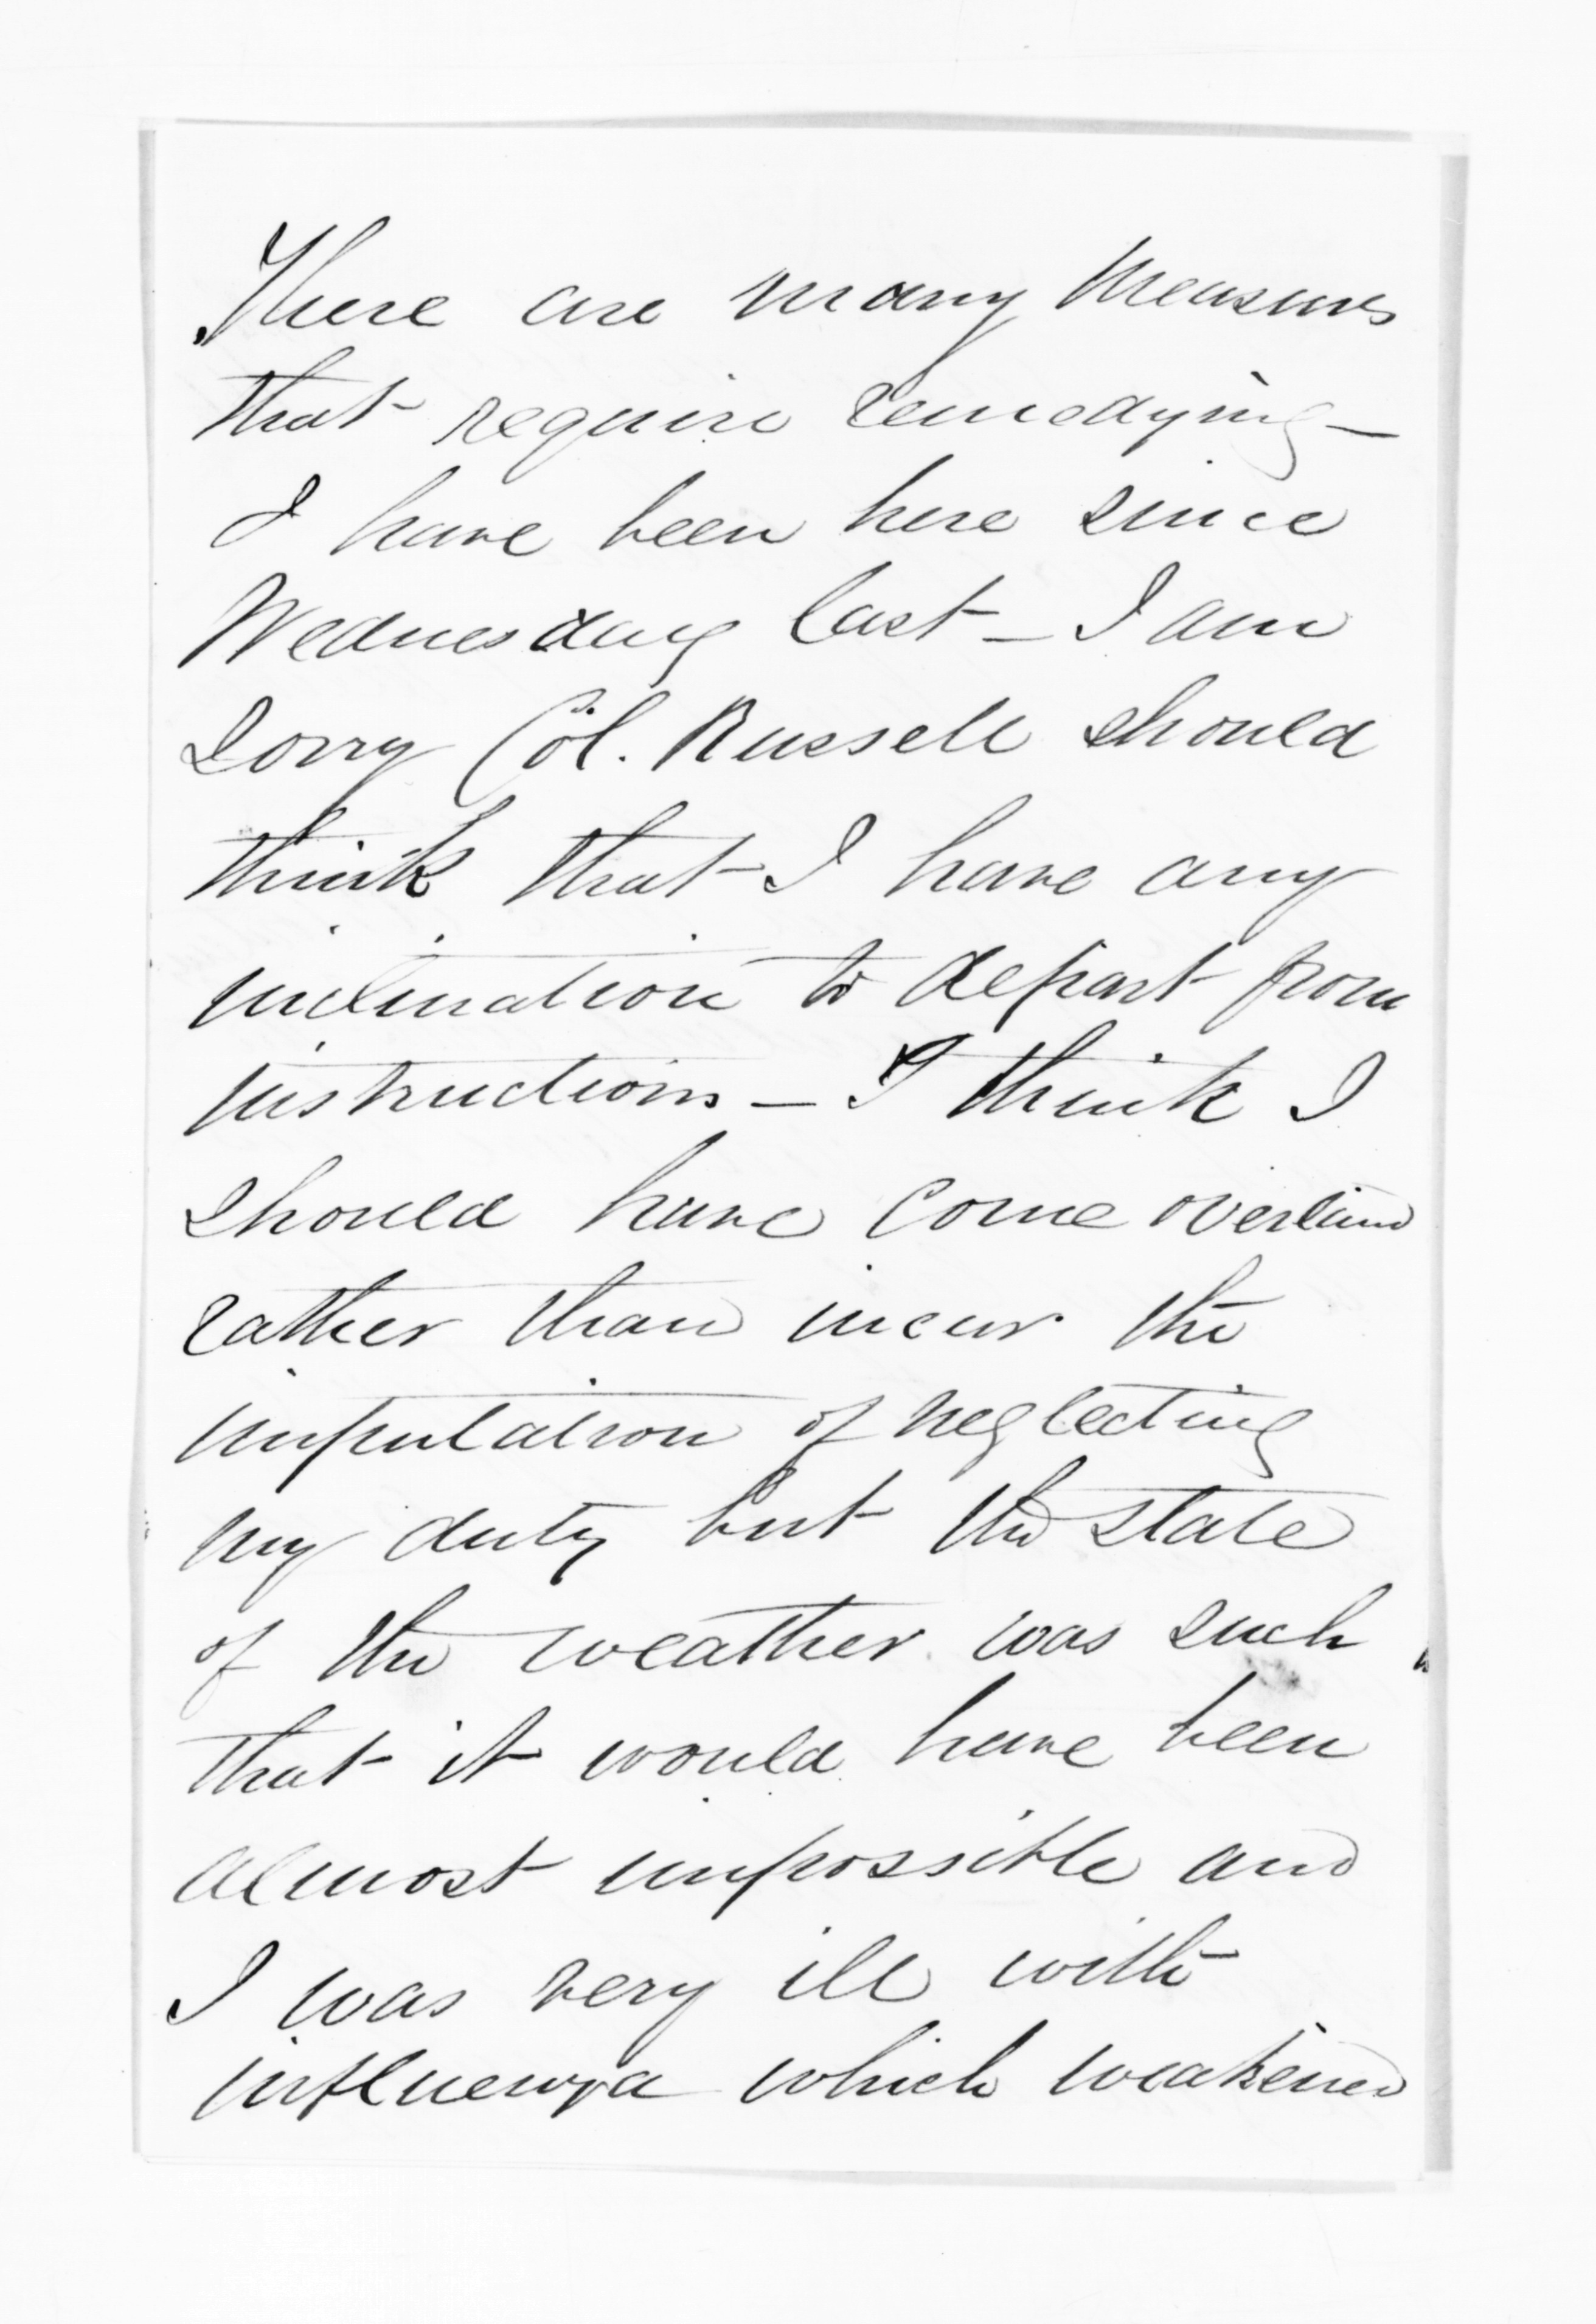 There are many measures
that require remedying —
I have been here since
Wednesday last — I am
sorry Col. Russell should
think that I have any
inclination to depart from
instructions — I think I
should have come overland
rather than incur the
imputation of neglecting
my duty but the state
of the weather was such
that it would have been
almost impossible and
I was very ill with
influenza which weakened